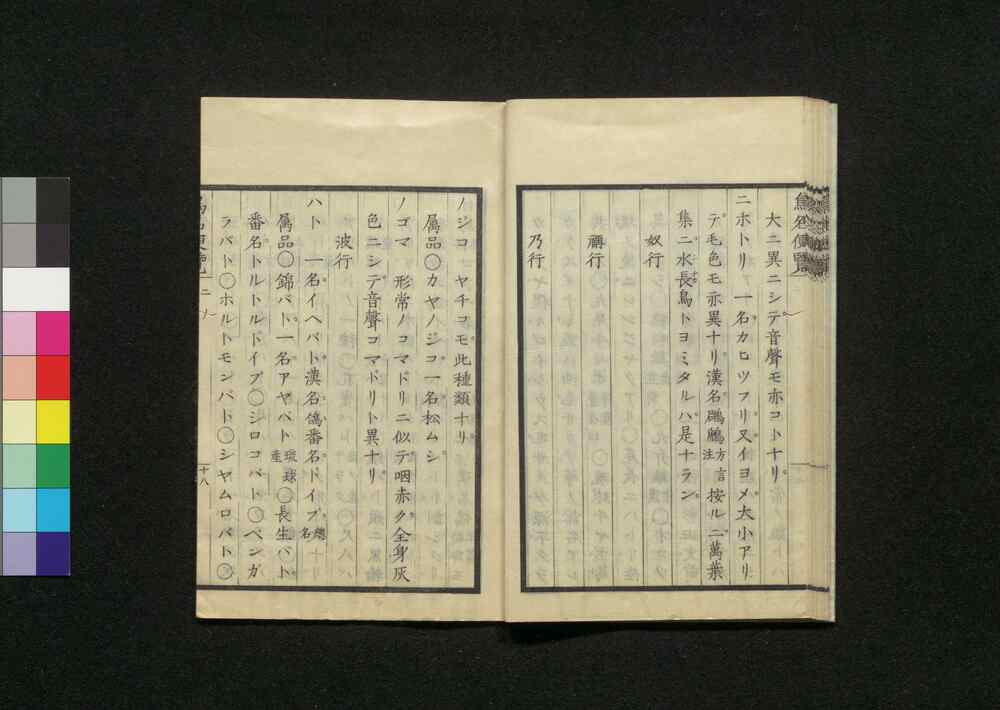 大ニ異ニシテ音聲モ亦コトナリ
ニホトリ 一名カヒツフリ又イヨメ大小アリ
テ毛色モ亦異ナリ漢名鸊鷉方言注按ルニ萬葉
集ニ水長鳥トヨミタルハ是ナラン
奴行
禰行
乃行
ノジコ ヤチコモ此種類ナリ
属品〇カヤノジコ一名松ムシ
ノゴマ 形常ノコマドリニ似テ咽赤ク全身灰
色ニシテ音聲コマドリト異ナリ
波行
ハト 一名イヘバト漢名鴿番名ドイブ總名
属品〇錦バト一名アヤバト琉球産〇長生バト
番名トルトルドイブ〇シロコバト〇ベンガ
ラバト〇ホルトモンバト〇シヤムロバト〇
十八